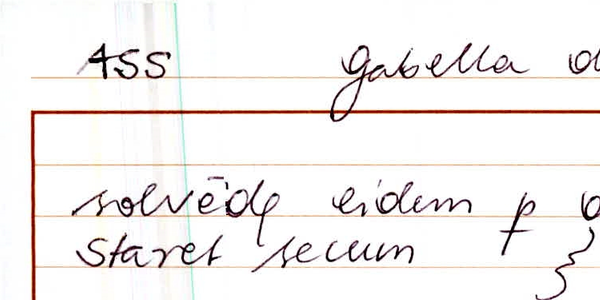 ASS gabella
solvēdę eidem p
staret secum